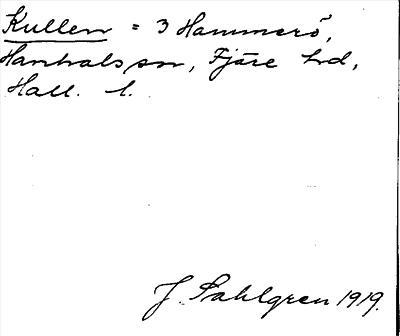 Kullen = 3 Hammerö,
Hanhals sn, Fjäre hd,
Hall. l.
J. Sahlgren 1919.